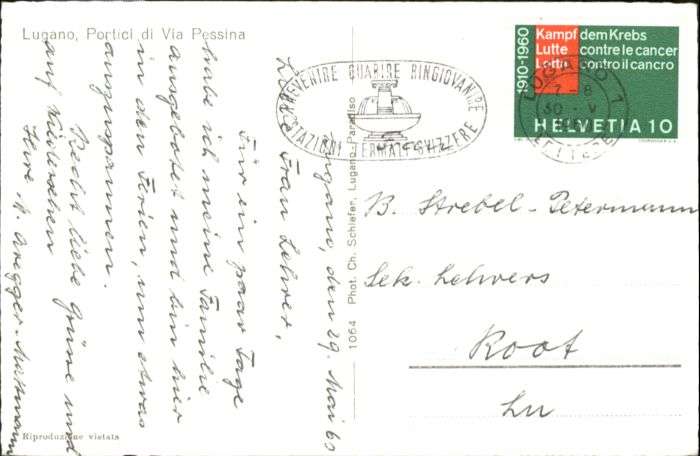 Lugano, Portici di Via Pessina
1910-1960
Kampf dem Krebs
Lutte contre le cancer
Lotta contro il cancro
HELVETIA 10
LUGANO 1
LETTERE
30 · V
PREVENIRE GUARIRE RINGIOVANIRE
STAZIONI TERMALI SVIZZERE
Lugano, den 29. Mai 60
Liebe Frau Lehrer,
Für ein paar Tage
habe ich meine Familie
ausgebotet und bin hier
in den Ferien, um etwas
auszuspannen.
Recht liebe Grüsse und
auf Wiedersehen
Ihre
Aregger-Mattmann
B. Strebel-Petermann
Sek. Lehrers
Root
Lu
1064 Phot. Ch. Schiefer, Lugano-Paradiso
Riproduzione vietata